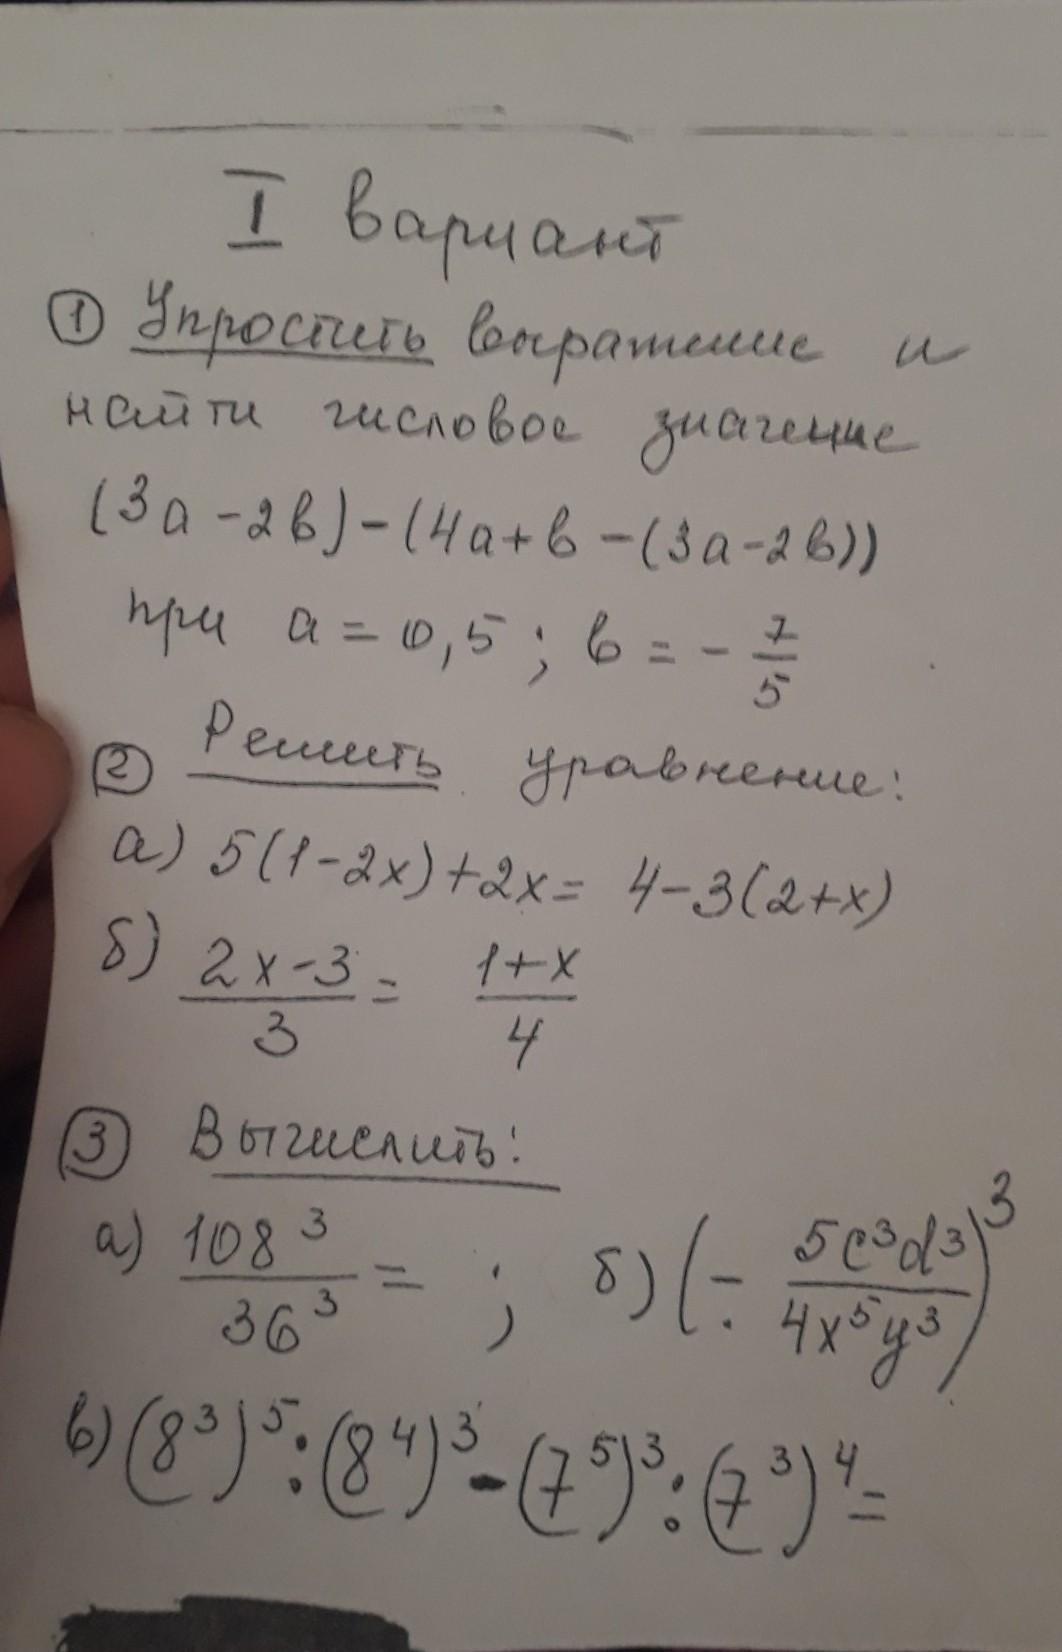 I вариант
① Упростить выражение и
найти числовое значение
(3a-2b)-(4a+b-(3a-2b))
при a=0,5; b=-7/5
② Решить уравнение:
а) 5(1-2x)+2x= 4-3(2+x)
б) (2x-3)/3 = (1+x)/4
③ Вычислить:
а) 108³/36³ = ; б) (- 5c³d³/4x⁵y³)³
в) (8³)⁵:(8⁴)³-(7⁵)³:(7³)⁴=